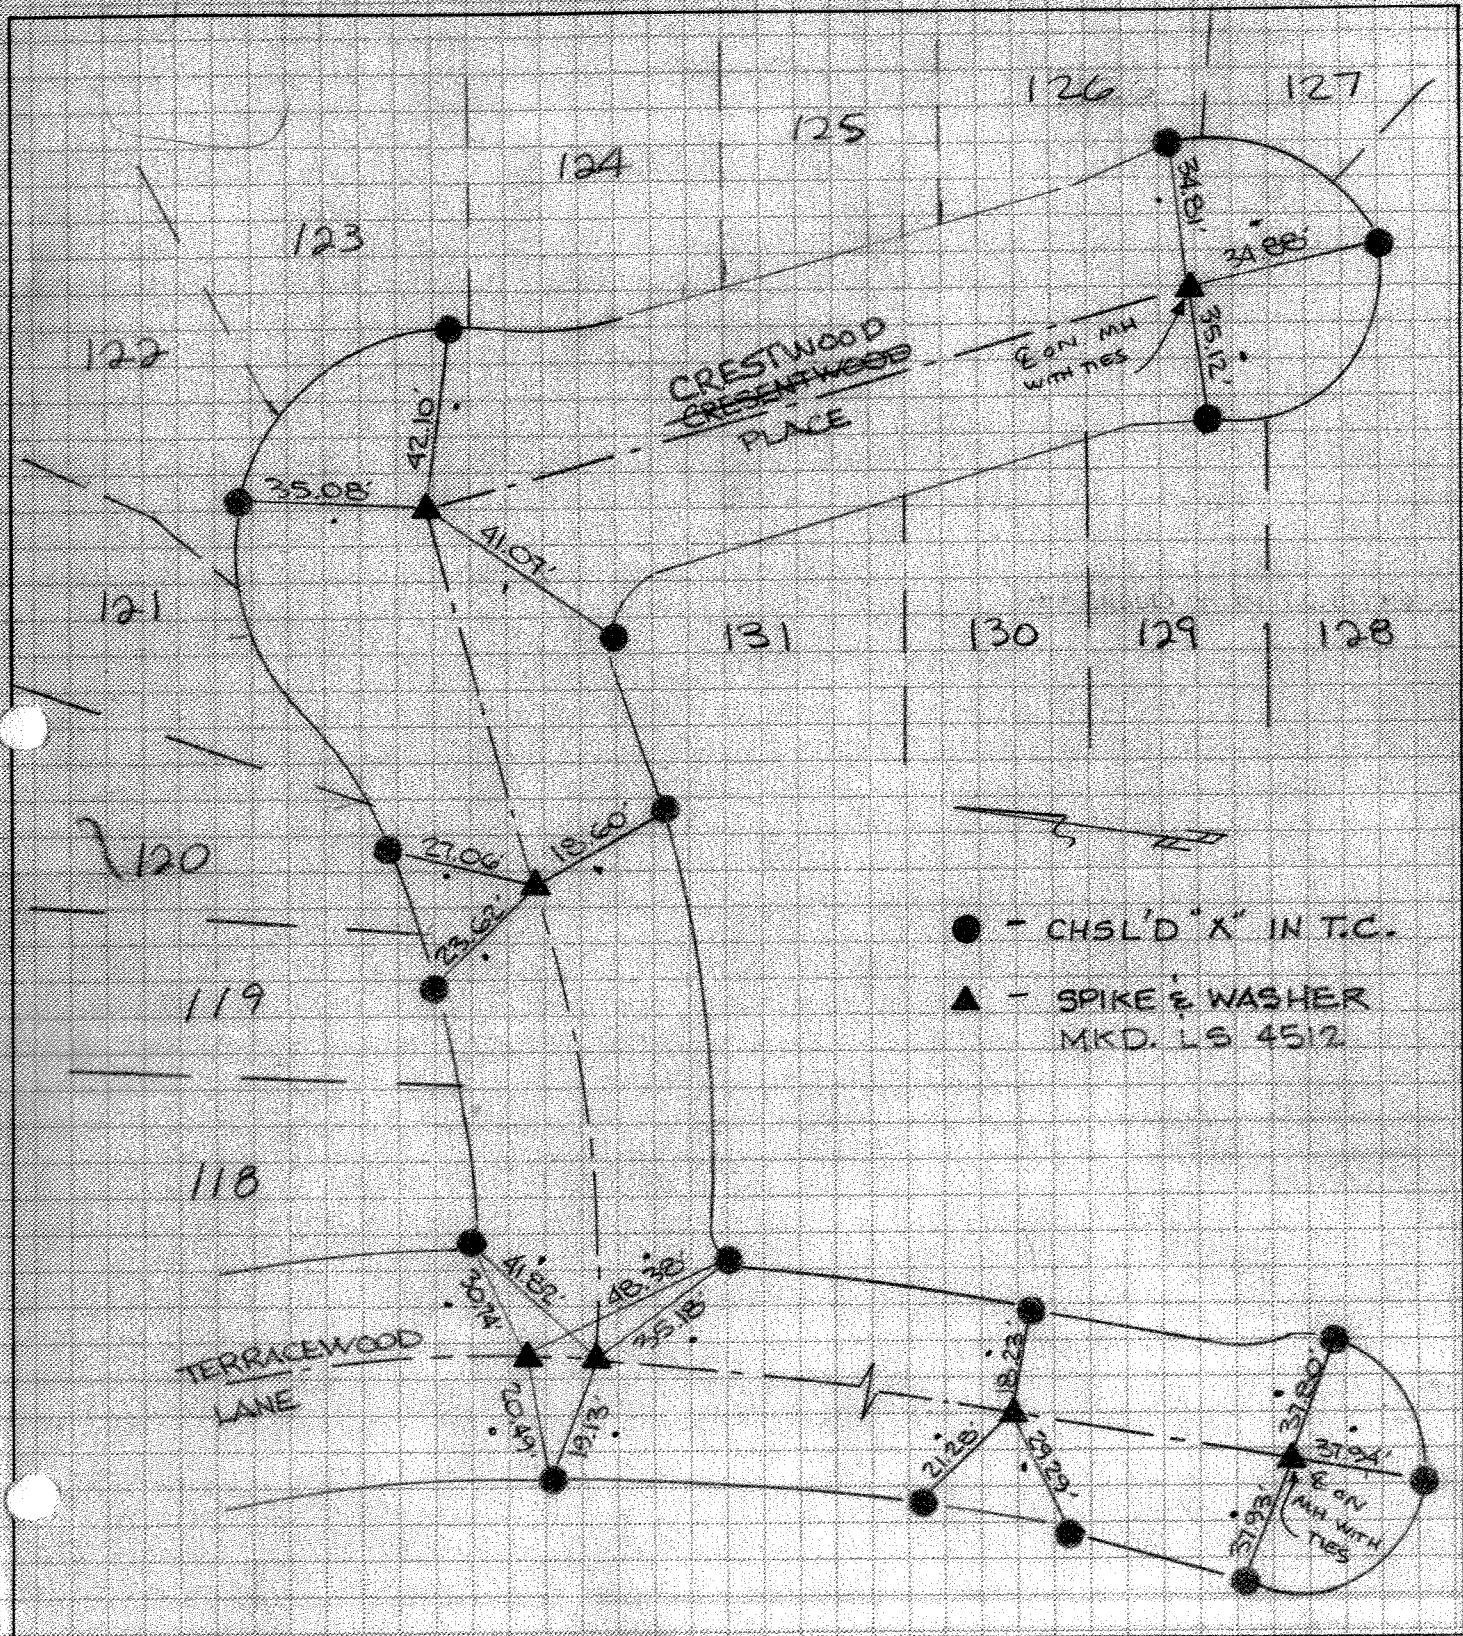 126
127
125
124
123
122
34.81'
34.88'
35.12'
℄ ON MH
WITH TIES
CRESTWOOD
CRESENTWOOD
PLACE
42.10'
35.08'
41.07'
121
131
130
129
128
120
27.06'
18.60'
23.62'
119
● - CHSL'D "X" IN T.C.
▲ - SPIKE & WASHER
MKD. LS 4512
118
41.82'
30.74'
48.38'
35.18'
TERRACEWOOD
LANE
20.49'
19.13'
18.23'
21.28'
29.29'
37.80'
37.94'
37.93'
℄ ON
MH WITH
TIES